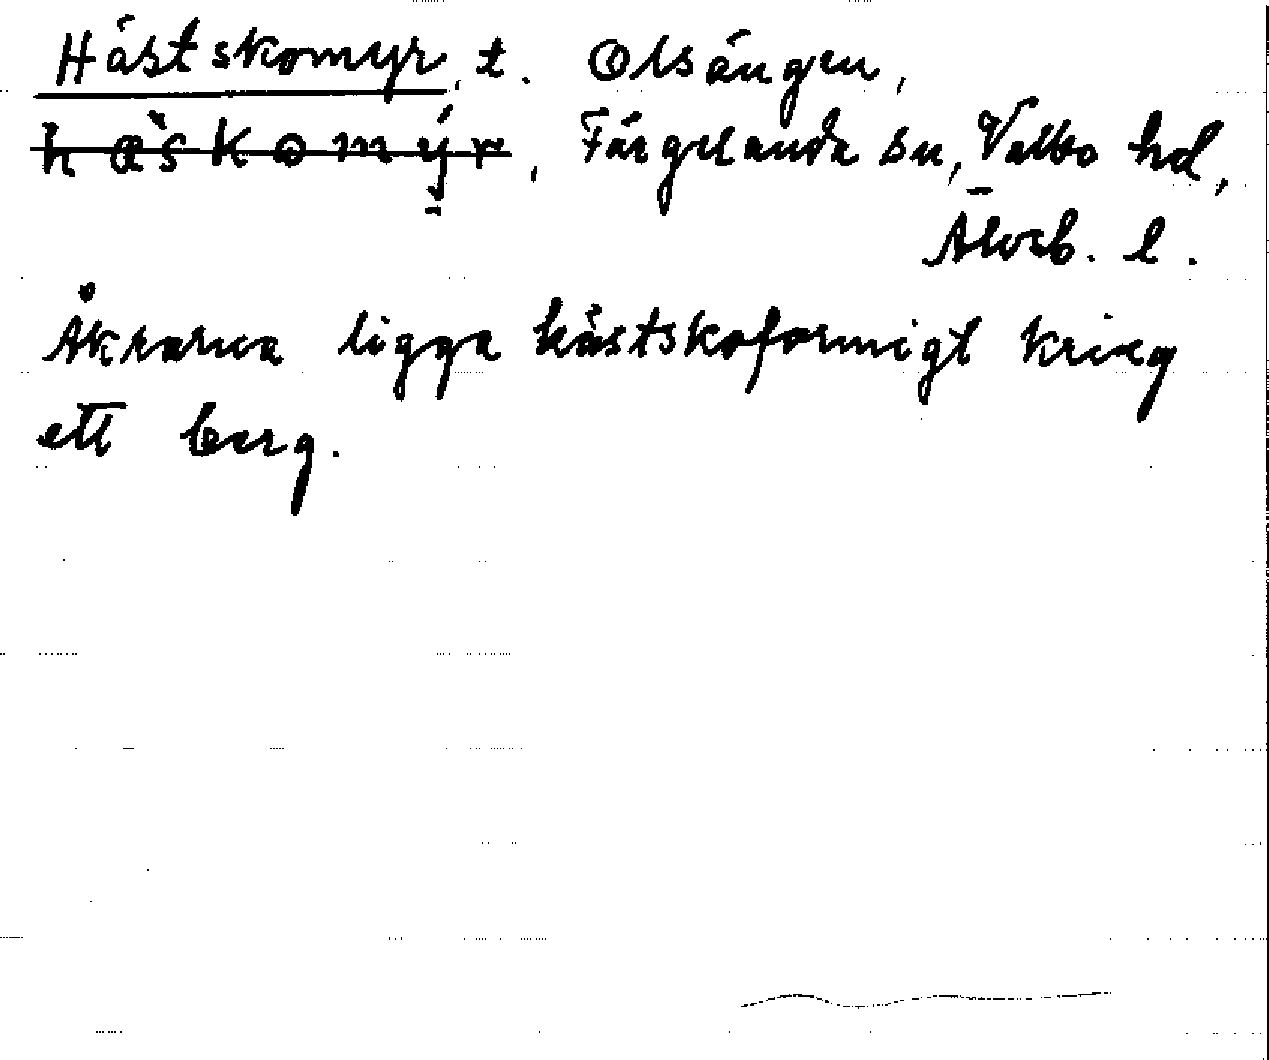 Hästskomyr, t. Olsängen,
hæskomýr, Färgelanda sn, Valbo hd,
Älvsb. l.
Åkrarna ligga hästskoformigt kring
ett berg.